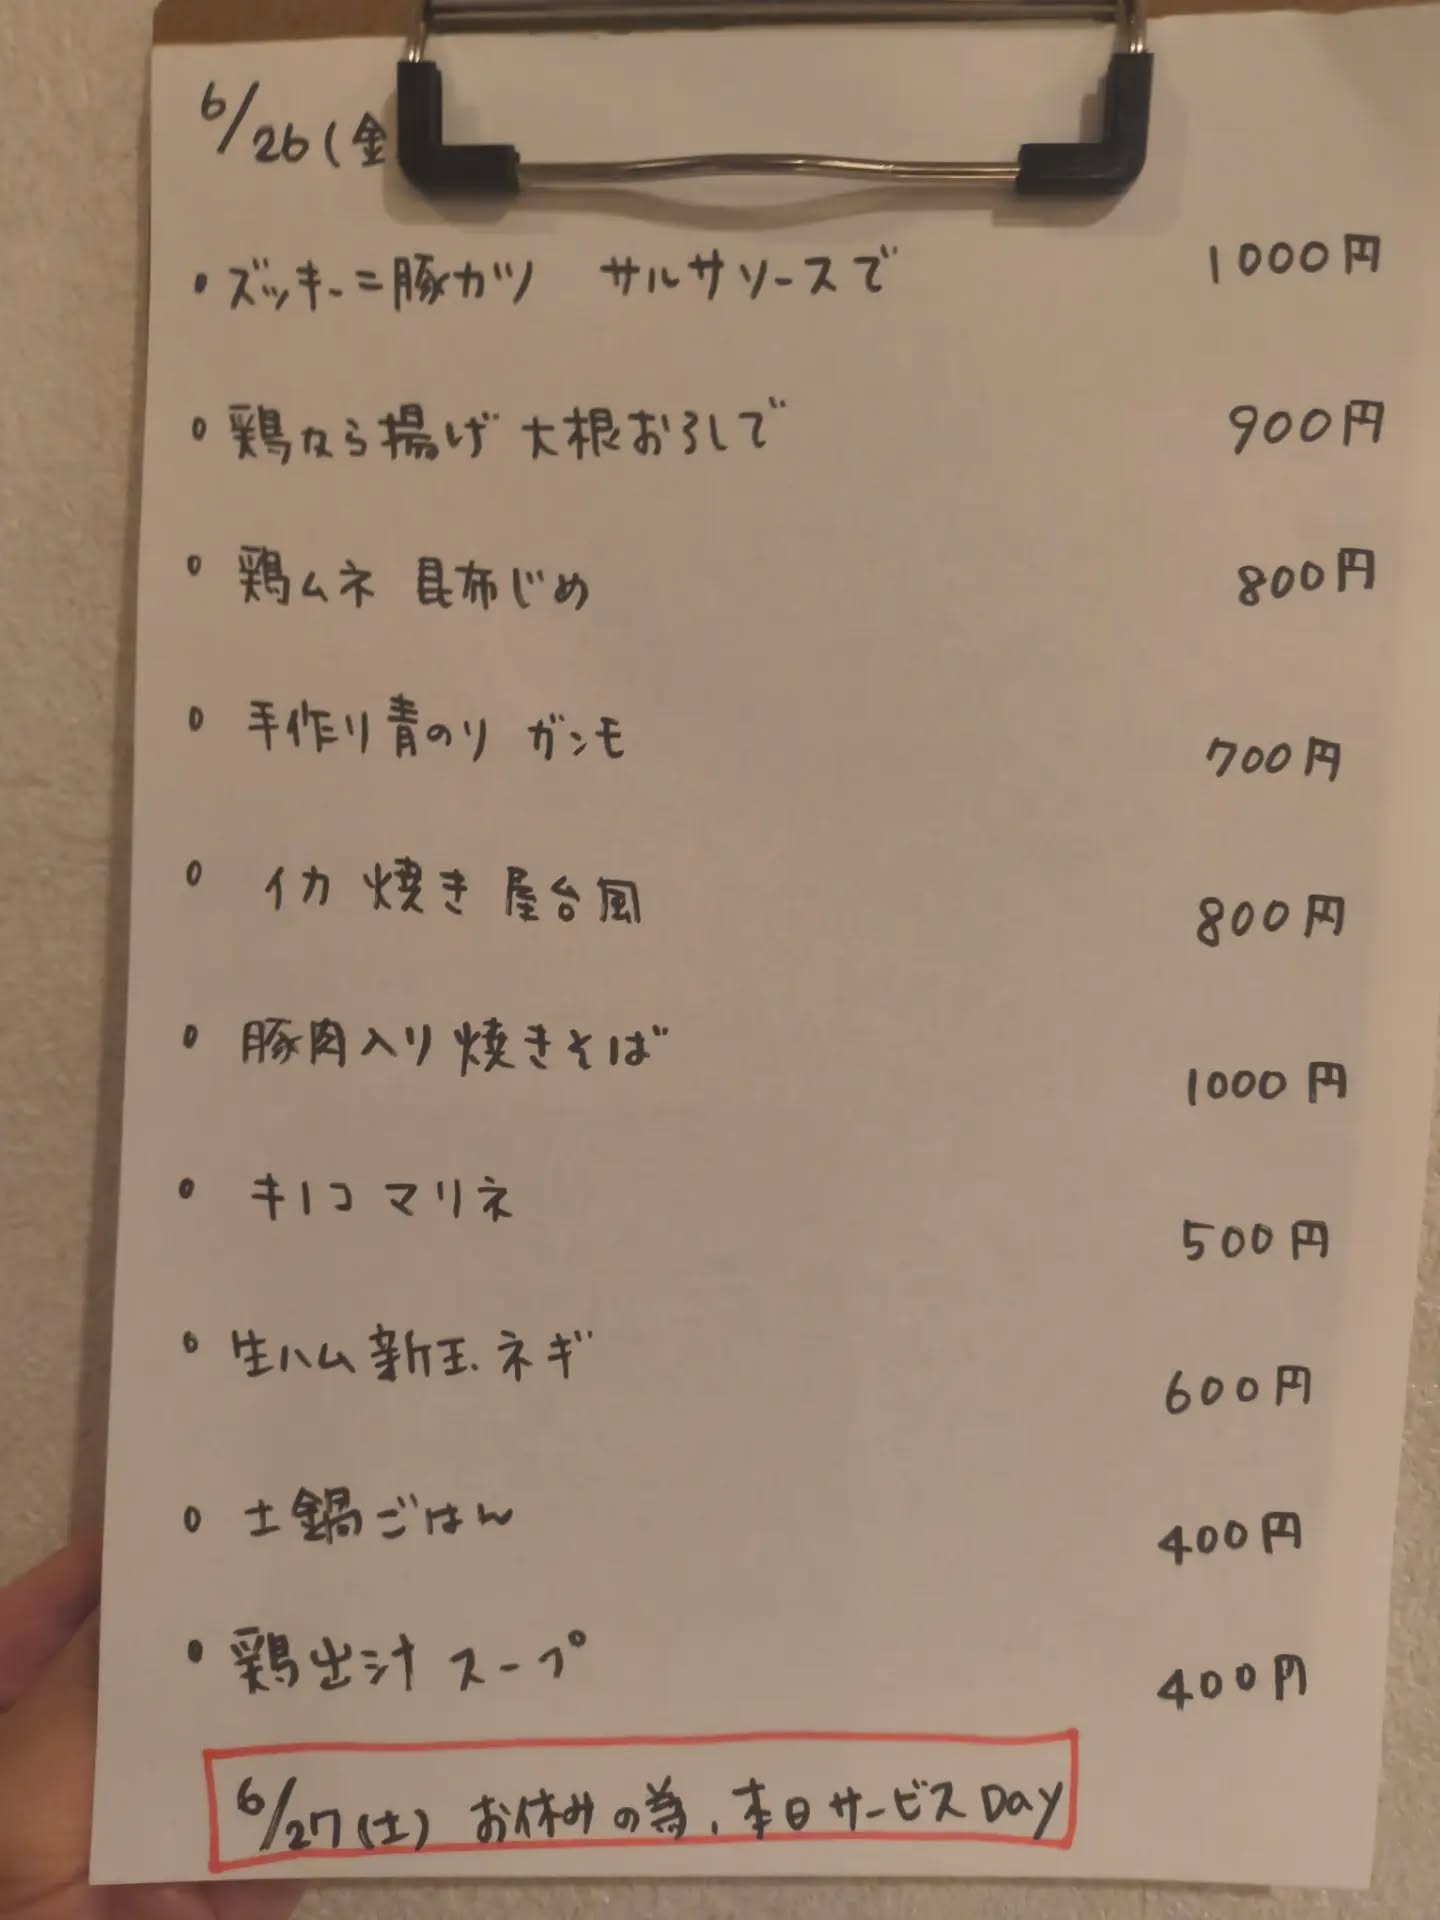 6/26(金
・ズッキーニ豚カツ サルサソースで 1000円
・鶏なら揚げ 大根おろしで 900円
・鶏ムネ 昆布じめ 800円
・手作り青のり ガンモ 700円
・イカ焼き 屋台風 800円
・豚肉入り焼きそば 1000円
・キノコ マリネ 500円
・生ハム新玉ネギ 600円
・土鍋ごはん 400円
・鶏出汁 スープ 400円
6/27(土) お休みの為、本日サービスDay